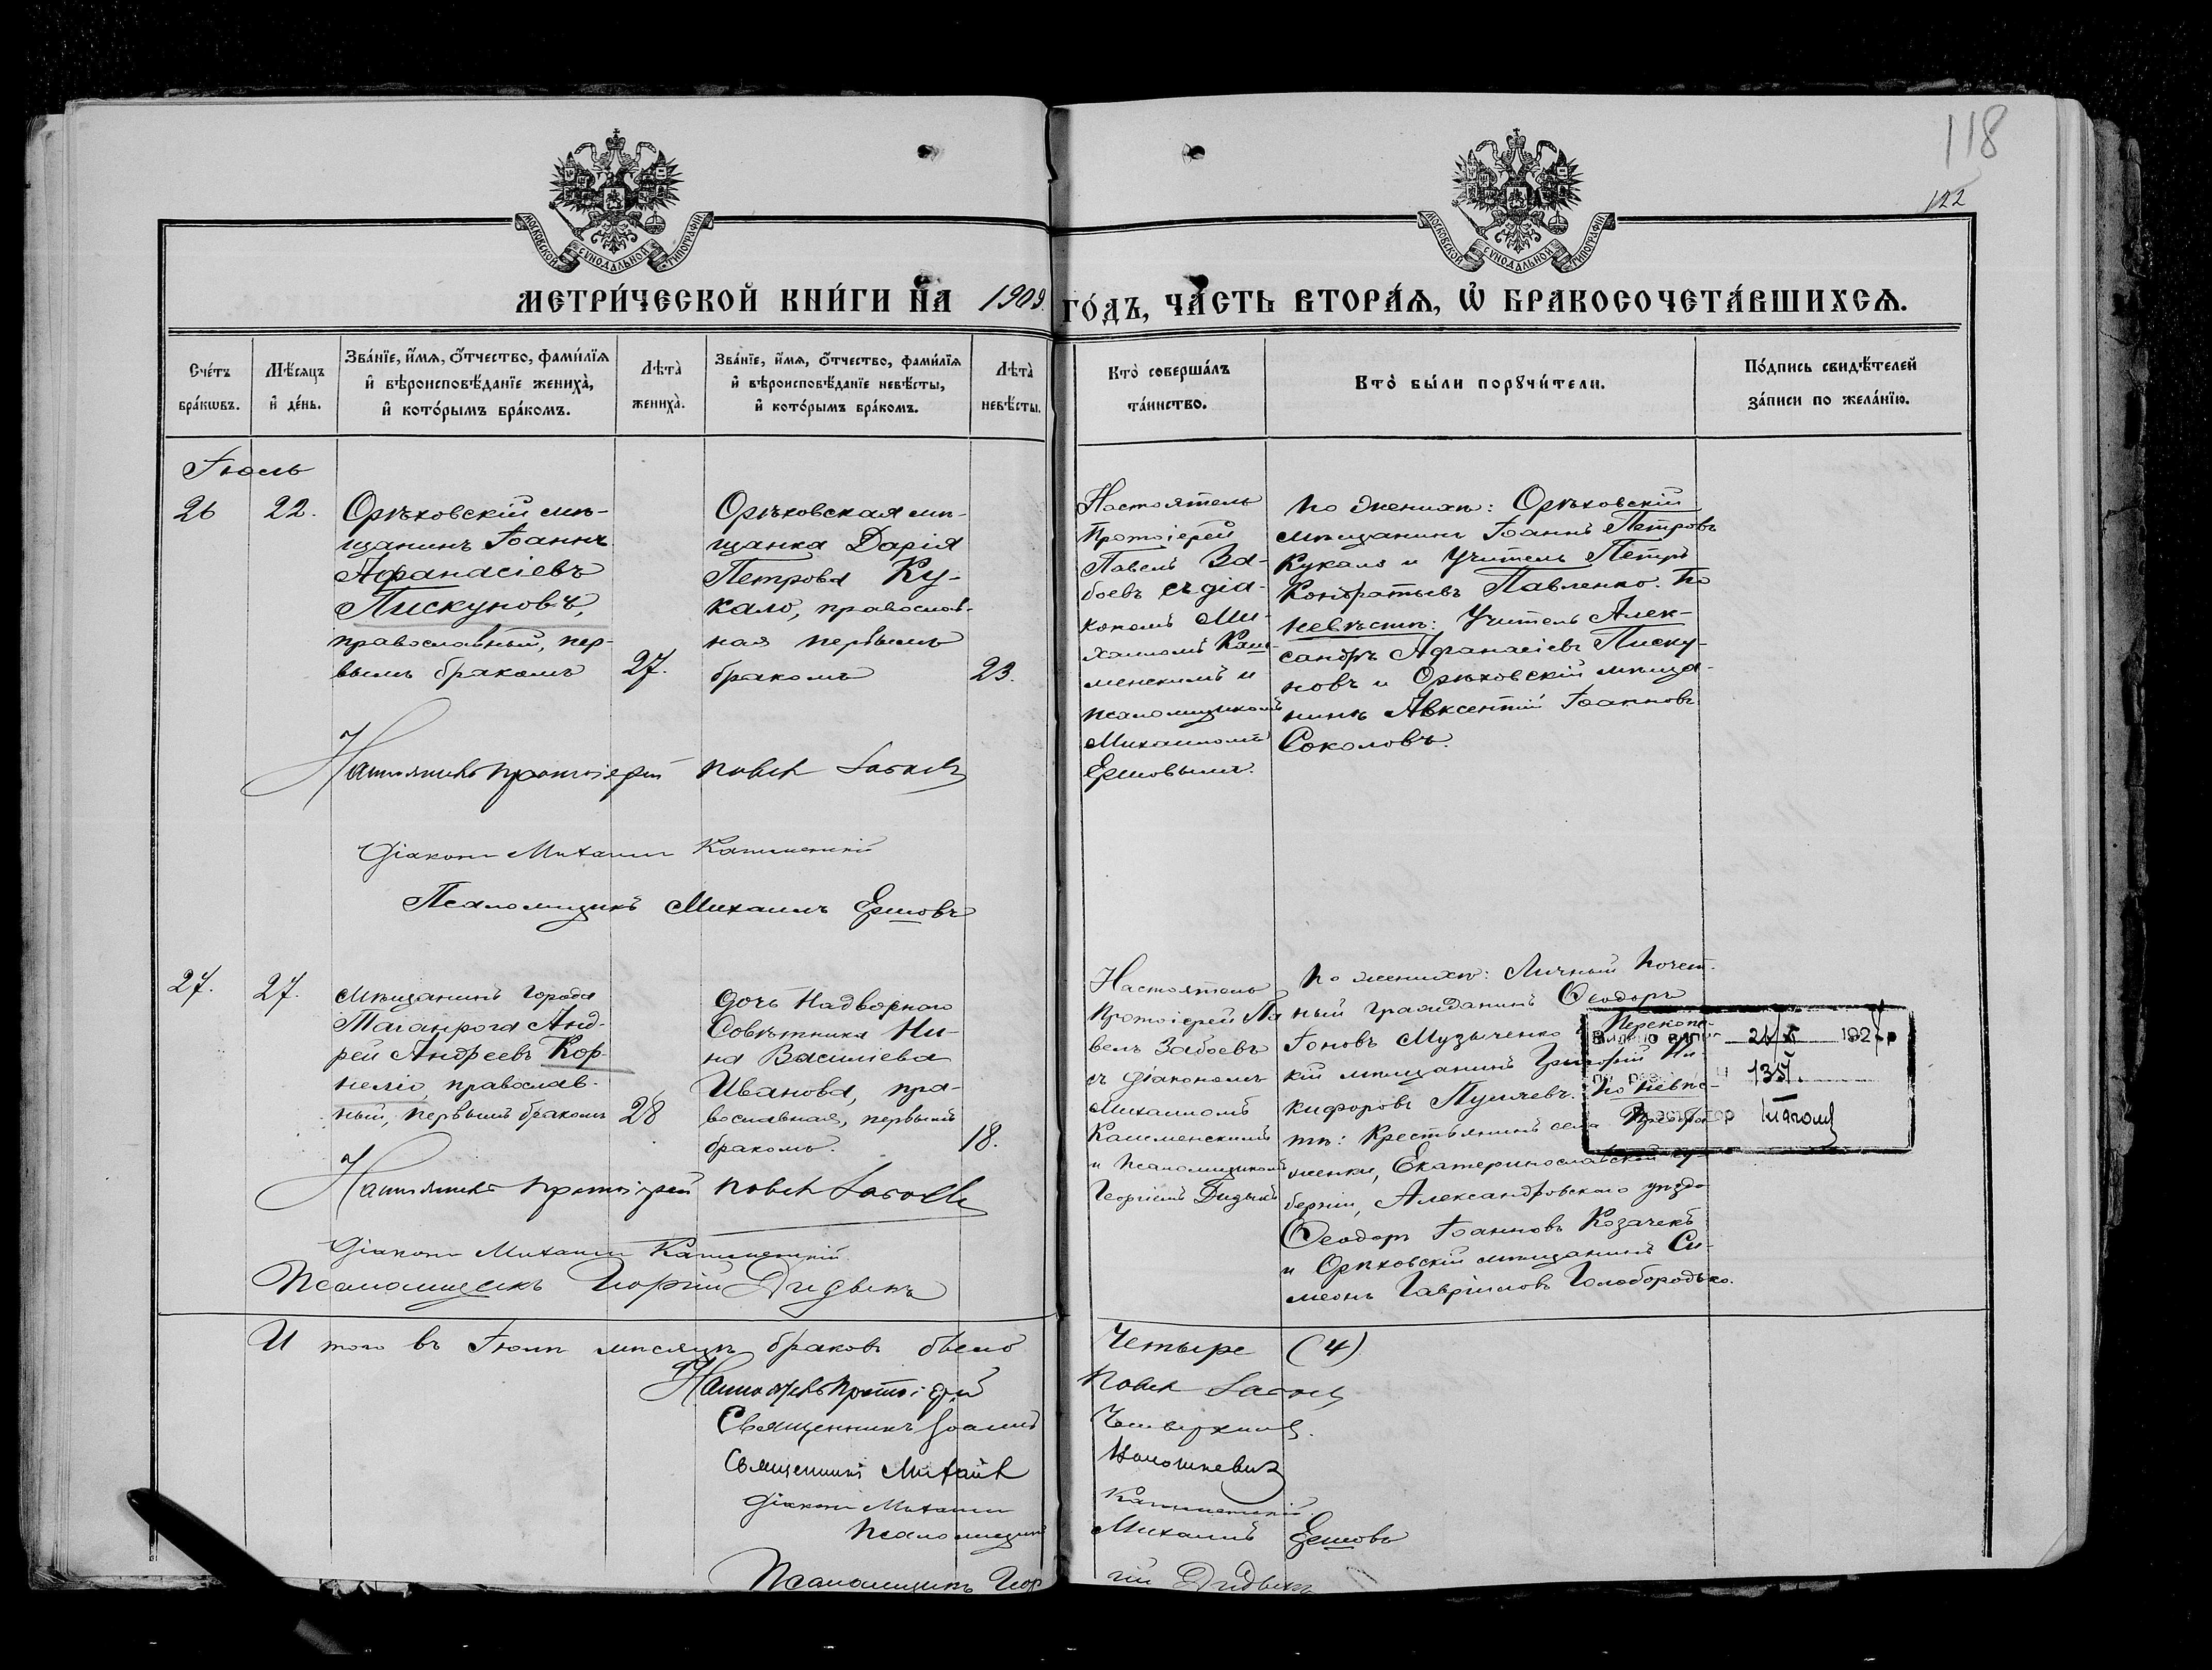 118
122
МОСКОВСКОЙ СѴНОДАЛЬНОЙ ТИПОГРАФІИ
МОСКОВСКОЙ СѴНОДАЛЬНОЙ ТИПОГРАФІИ
МЕТРИ́ЧЕСКОЙ КНИ́ГИ НА 1909 ГО́ДЪ, ЧА́СТЬ ВТОРА́Я, Ѡ БРАКОСОЧЕТА́ВШИХСЯ.
Сче́тъ
бра́кѡвъ.
Мѣ́сяцъ
и҆ де́нь.
Зва́нїе, и҆́мя, ѻ҆́тчество, фами́лїя
и҆ вѣроисповѣ́данїе жениха̀,
и҆ кото́рымъ бра́комъ.
Лѣта̀
жениха̀.
Зва́нїе, и҆́мя, ѻ҆́тчество, фами́лїя
и҆ вѣроисповѣ́данїе невѣ́сты,
и҆ кото́рымъ бра́комъ.
Лѣта̀
невѣ́сты.
Кто̀ соверша́лъ
та́инство.
Кто̀ бы́ли порꙋчи́тели.
По́дпись свидѣ́телей
за́писи по жела́нїю.
Іюль
26
22.
Орѣховскій мѣ-
щанинъ Іоаннъ
Афанасіевъ
Пискуновъ,
православный, пер-
вымъ бракомъ
27.
Орѣховская мѣ-
щанка Дарія
Петрова Ку-
кало, православ-
ная первымъ
бракомъ
23.
Настоятель
Протоіерей
Павелъ За-
боевъ съ діа-
кономъ Ми-
хаиломъ Каш-
менскимъ и
псаломщикомъ
Михаиломъ
Ершовымъ.
По женихѣ: Орѣховскій
мѣщанинъ Іоаннъ Петровъ
Кукало и Учитель Петръ
Кондратьевъ Павленко. По
невѣстѣ: Учитель Алек-
сандръ Афанасіевъ Писку-
новъ и Орѣховскій мѣща-
нинъ Авксентій Іоанновъ
Соколовъ.
Настоятель протоіерей Павелъ Забоевъ
Діаконъ Михаилъ Кашменскій
Псаломщикъ Михаилъ Ершовъ
27.
27.
Мѣщанинъ города
Таганрога Анд-
рей Андреевъ Кор-
неліо, православ-
ный, первымъ бракомъ
28
дочь Надворнаго
Совѣтника Ни-
на Василіева
Иванова, пра-
вославная, первымъ
бракомъ.
18.
Настоятель
Протоіерей Па
велъ Забоевъ
съ діакономъ
Михаиломъ
Кашменскимъ
и псаломщикомъ
Георгіемъ Дидыкъ
По женихѣ: Личный почет-
ный гражданинъ Ѳеодоръ
Іоновъ Музыченко и Перекопс-
кій мѣщанинъ Григорій Ни-
кифоровъ Пугачевъ. По невѣс-
тѣ: Крестьянинъ села
женки, Екатеринославской гу-
берніи, Александровскаго уѣзда
Ѳеодоръ Іоанновъ Козачекъ
и Орѣховскій мѣщанинъ Си-
меонъ Гавріиловъ Голобородько.
135
Настоятель протоіерей Павелъ Забоевъ
Діаконъ Михаилъ Кашменскій
Псаломщикъ Георгій Дидыкъ
И того въ Іюлѣ мѣсяцѣ браковъ было Четыре (4)
Настоятель Протоіерей Павелъ Забоевъ
Священникъ Іоаннъ
Священникъ Михаилъ
Діаконъ Михаилъ Кашменскій
Псаломщикъ Михаилъ Ершовъ
Псаломщикъ Георгій Дидыкъ